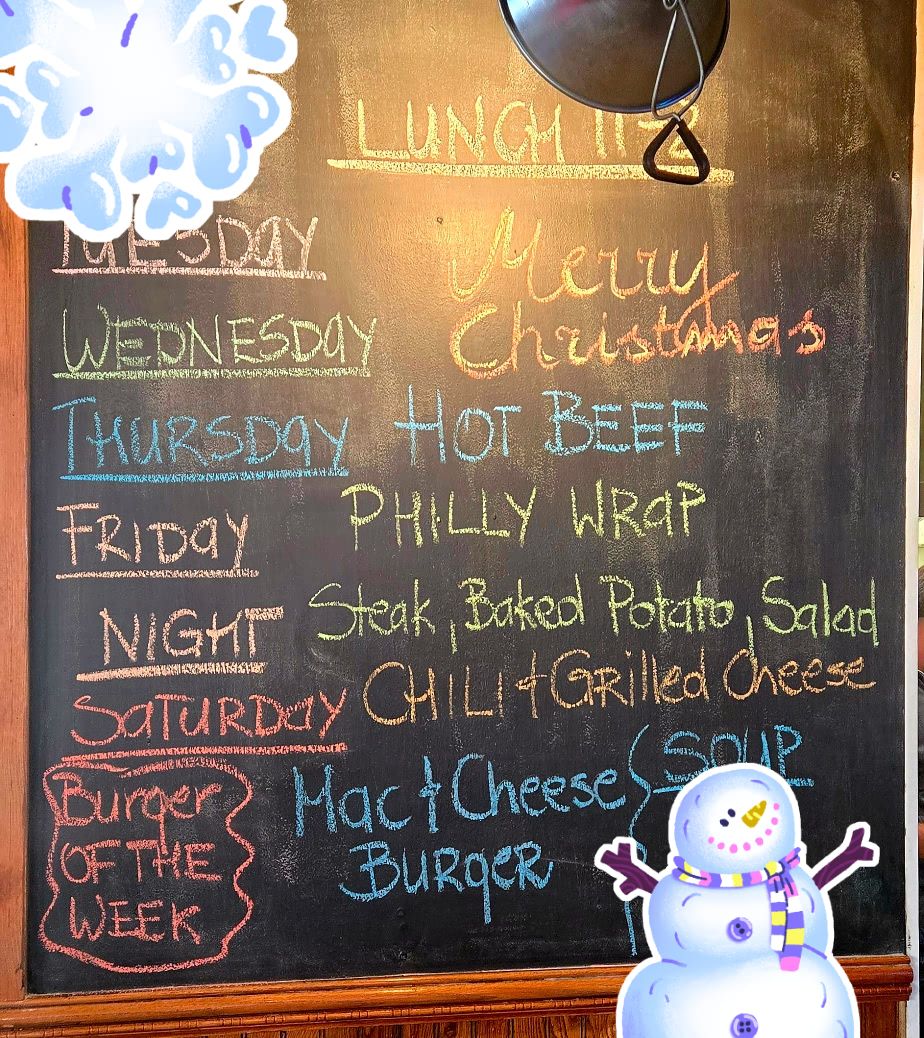 LUNCH 11-2
TUESDAY
Merry
WEDNESDAY Christmas
THURSDAY HOT BEEF
FRIDAY PHILLY WRAP
NIGHT Steak, Baked Potato, Salad
SATURDAY CHILI & Grilled Cheese
Burger OF THE WEEK
Mac & Cheese
BURGER
SOUP